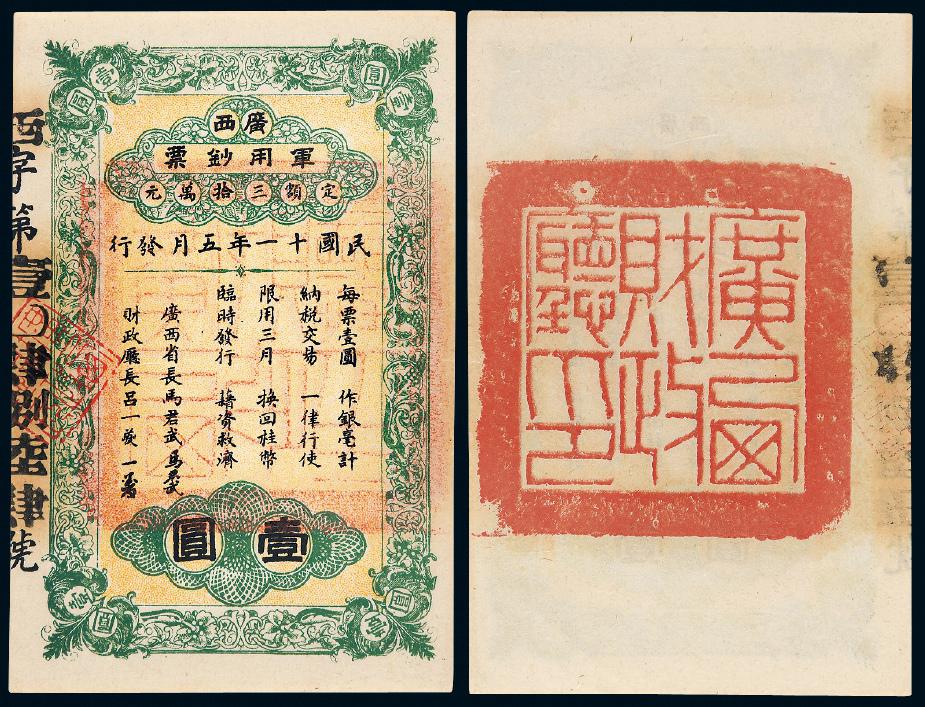 廣西
軍用鈔票
定額三拾萬元
民國十一年五月發行
每票壹圓 作銀毫計
納稅交易 一律行使
限用三月 換回桂幣
臨時發行 藉資救濟
廣西省長馬君武 馬君武
財政廳長呂一夔 一夔
壹圓
壹圓
壹圓
壹圓
壹圓
西字第壹0肆捌陸肆號
廣西
財政
廳印